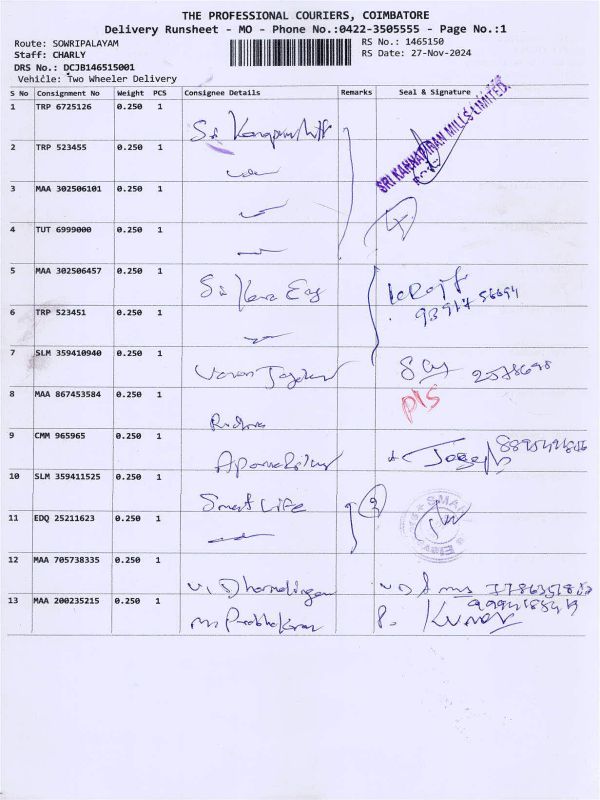 THE PROFESSIONAL COURIERS, COIMBATORE
Delivery Runsheet - MO - Phone No.:0422-3505555 - Page No.:1
Route: SOWRIPALAYAM RS No.: 1465150
Staff: CHARLY RS Date: 27-Nov-2024
DRS No.: DCJB146515001
Vehicle: Two Wheeler Delivery
S No Consignment No Weight PCS Consignee Details Remarks Seal & Signature
1 TRP 6725126 0.250 1 SRI KANNAPIRAN MILLS LIMITED
2 TRP 523455 0.250 1
3 MAA 302506101 0.250 1
4 TUT 6999000 0.250 1 4
5 MAA 302506457 0.250 1
6 TRP 523451 0.250 1
7 SLM 359410940 0.250 1
8 MAA 867453584 0.250 1 P/S
9 CMM 965965 0.250 1 Joseph
10 SLM 359411525 0.250 1 Smart Life 2
11 EDQ 25211623 0.250 1
12 MAA 705738335 0.250 1 V. Dharmalingam
13 MAA 200235215 0.250 1 M. Prabhakaran P. Kumar